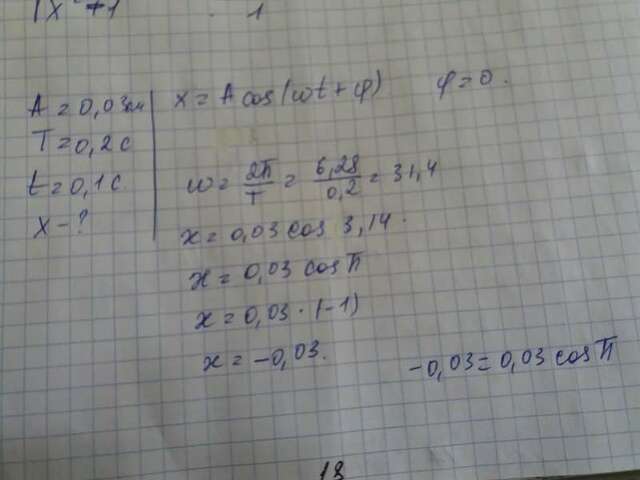 1x² + 1 1
A = 0,03м
T = 0,2 c
t = 0,1 c
X - ?
x = A cos(ωt + φ) φ = 0.
ω = 2π/T = 6,28/0,2 = 31,4
x = 0,03 cos 3,14.
x = 0,03 cos π
x = 0,03 · (-1)
x = -0,03.
-0,03 = 0,03 cos π